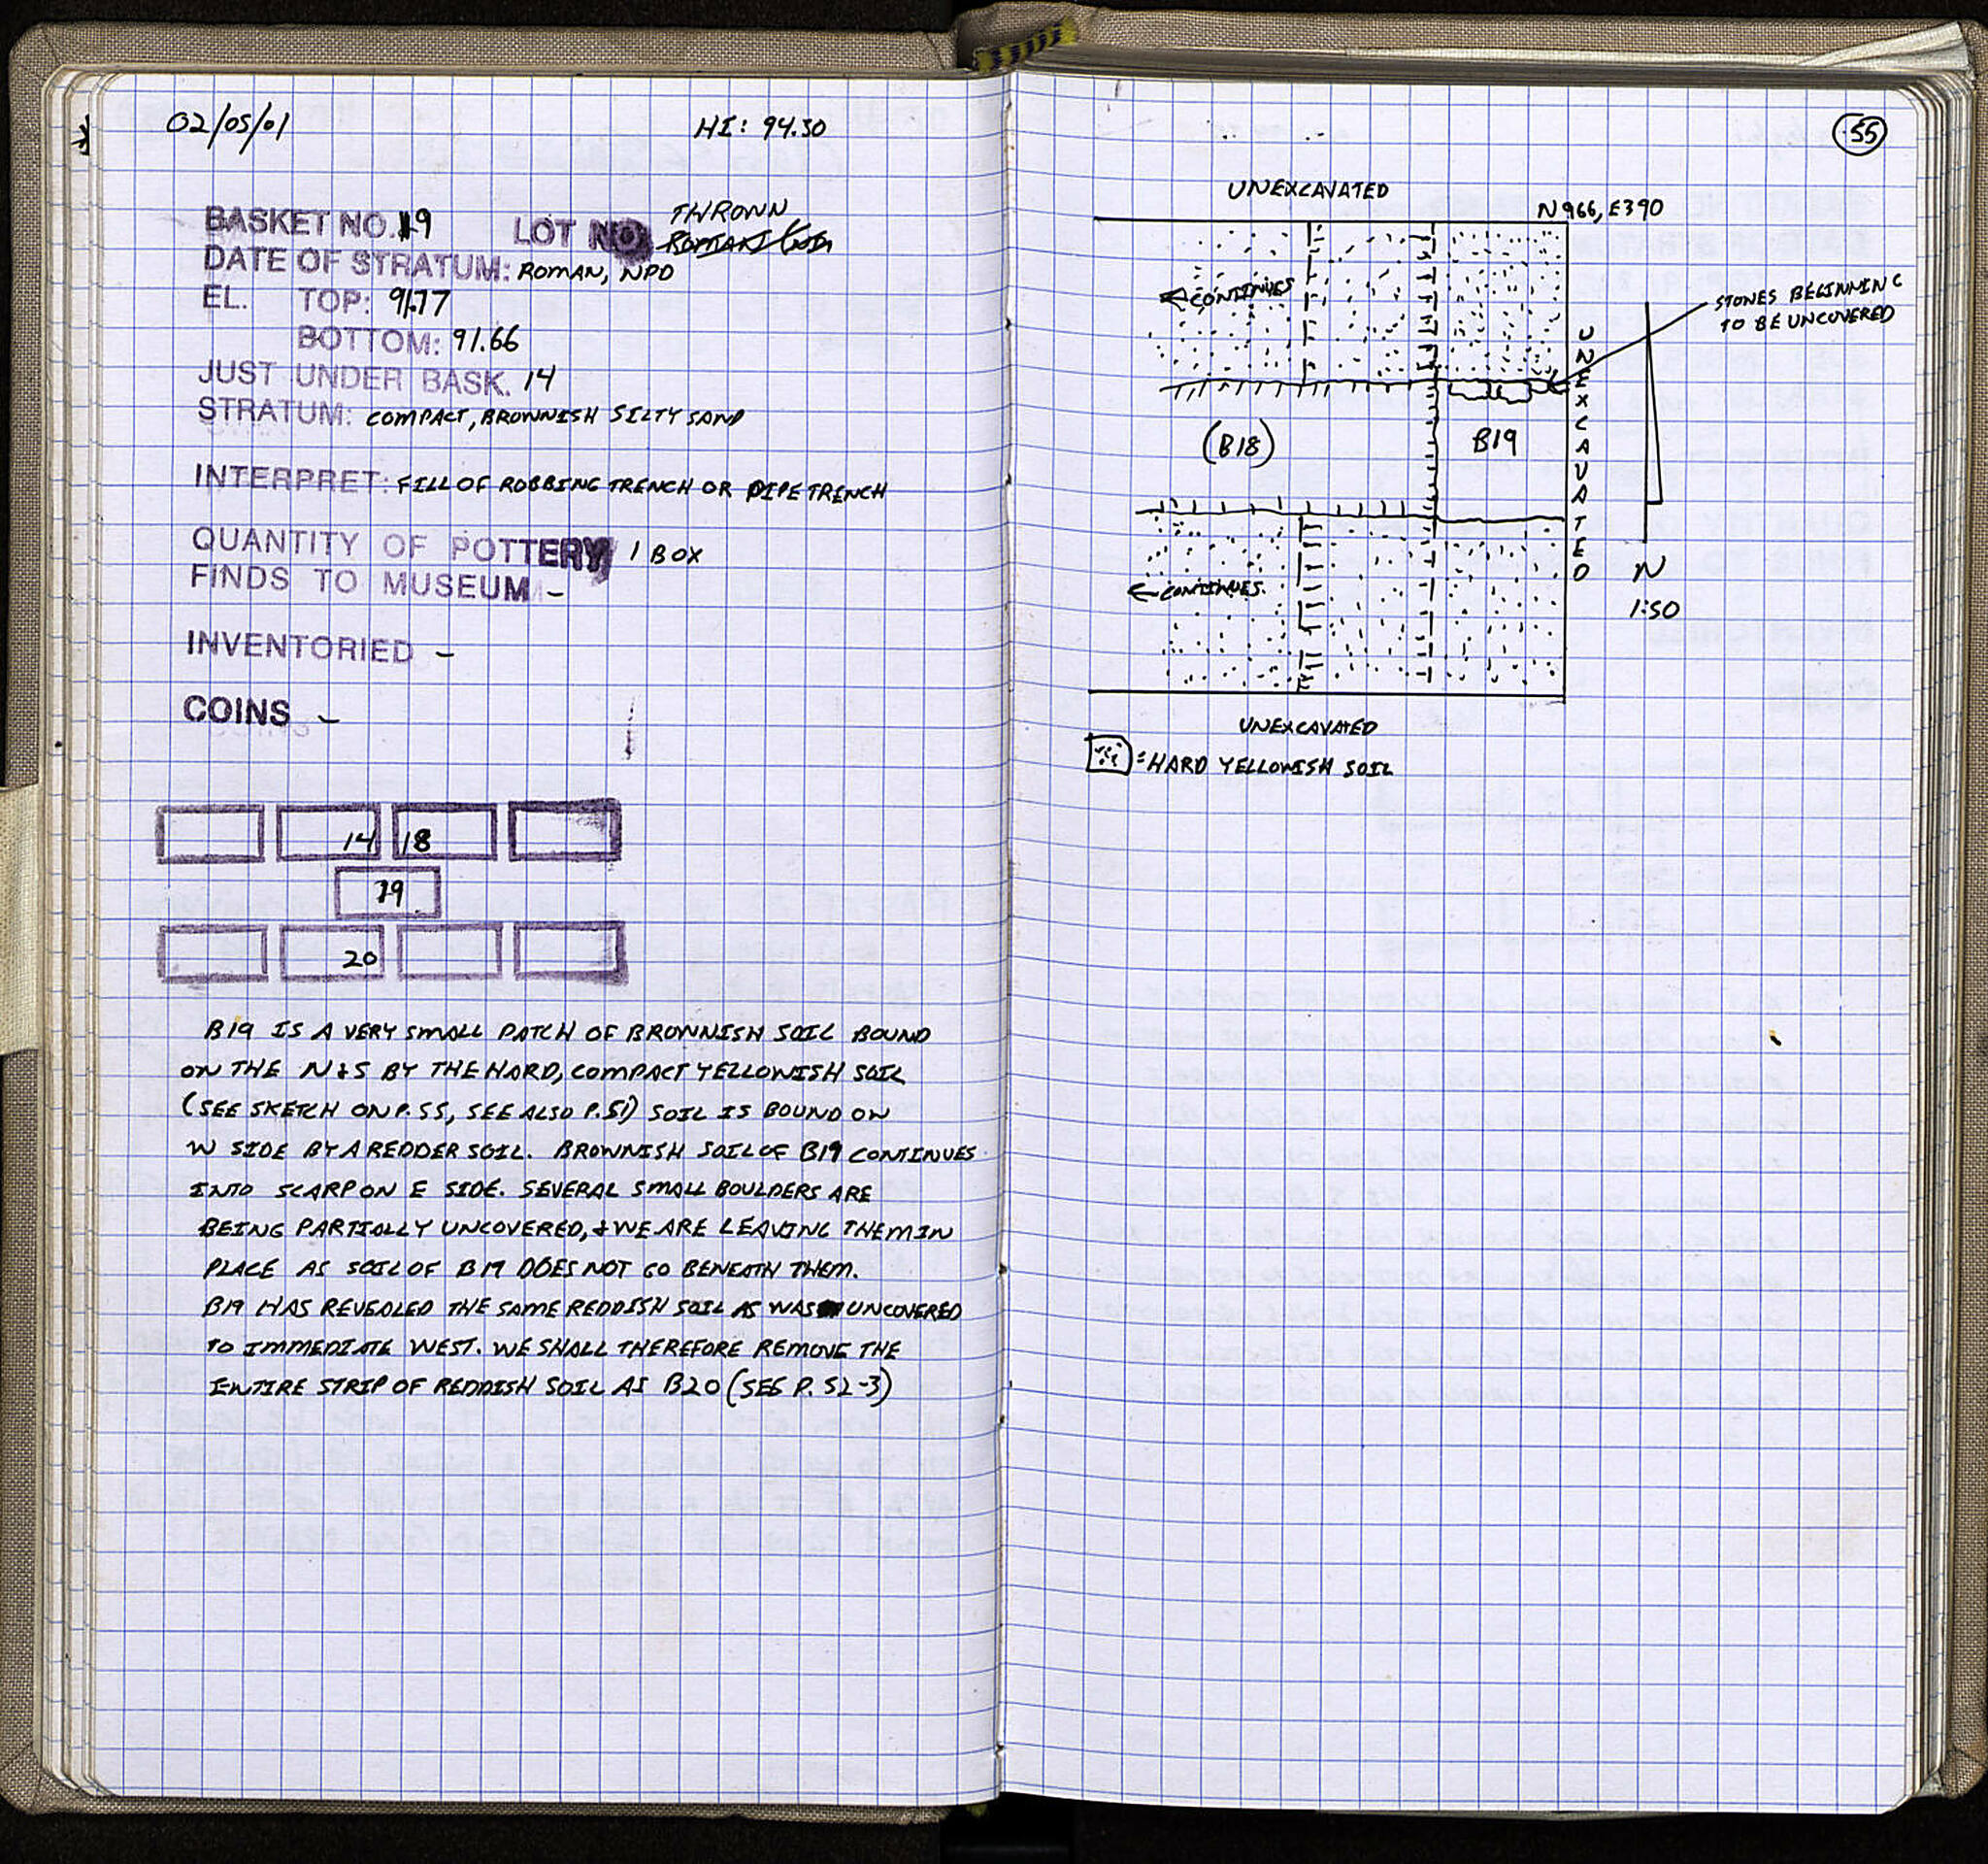 02/05/01 HI: 94.30
BASKET NO. 19 LOT NO THROWN
DATE OF STRATUM: ROMAN, NPD
EL. TOP: 91.77
BOTTOM: 91.66
JUST UNDER BASK. 14
STRATUM: COMPACT, BROWNISH SILTY SAND
INTERPRET: FILL OF ROBBING TRENCH OR PIPE TRENCH
QUANTITY OF POTTERY 1 BOX
FINDS TO MUSEUM -
INVENTORIED -
COINS -
14 18
19
20
B19 IS A VERY SMALL PATCH OF BROWNISH SOIL BOUND
ON THE N & S BY THE HARD, COMPACT YELLOWISH SOIL
(SEE SKETCH ON P. 55, SEE ALSO P. 51) SOIL IS BOUND ON
W SIDE BY A REDDER SOIL. BROWNISH SOIL OF B19 CONTINUES
INTO SCARP ON E SIDE. SEVERAL SMALL BOULDERS ARE
BEING PARTIALLY UNCOVERED, & WE ARE LEAVING THEM IN
PLACE AS SOIL OF B19 DOES NOT GO BENEATH THEM.
B19 HAS REVEALED THE SAME REDDISH SOIL AS WAS UNCOVERED
TO IMMEDIATE WEST. WE SHALL THEREFORE REMOVE THE
ENTIRE STRIP OF REDDISH SOIL AS B20 (SEE P. 52-3)
55
UNEXCAVATED
N966, E390
← CONTINUES
STONES BEGINNING
TO BE UNCOVERED
UNEXCAVATED
(B18) B19
← CONTINUES
N
1:50
UNEXCAVATED
= HARD YELLOWISH SOIL